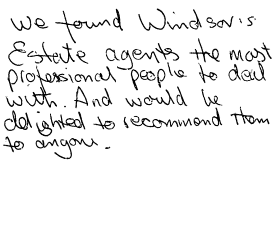 We found Windsor's
Estate agents the most
professional people to deal
with. And would be
delighted to recommend them
to anyone.